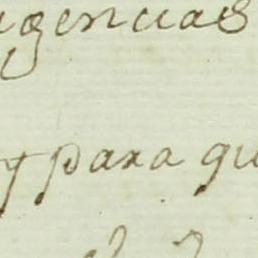 igencias
y para qu